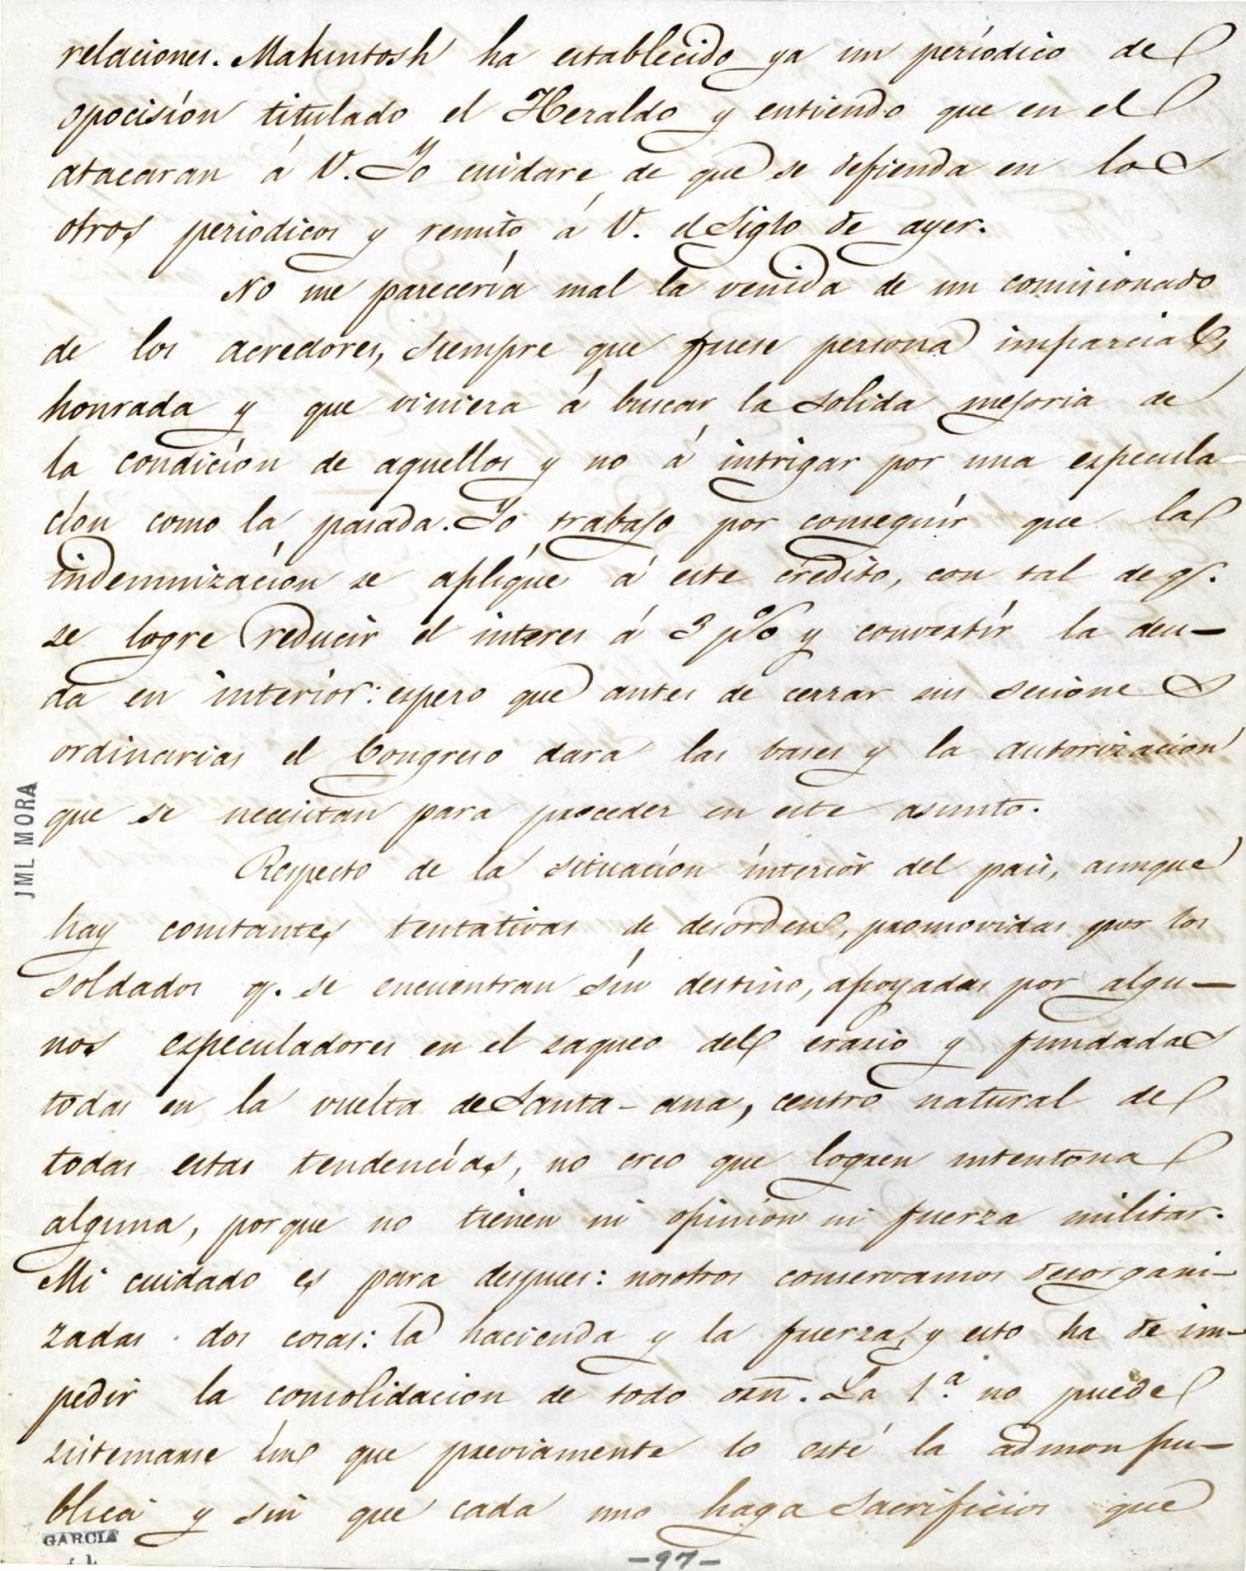 relaciones. Makintosh ha establecido ya un períodico de
opocisíon titulado el Heraldo y entiendo que en el
atacaran á V. Yo cuidare de que se defienda en los
otros periodicos y remito á V. el Siglo de ayer.
No me parecería mal la venida de un comisionado
de los acredores, siempre que fuese persona imparcial,
honrada y que viniera á buscar la solida mejoria de
la condicíon de aquellos y no á intrigar por una especula-
cíon como la pasada. Yo trabajo por conseguír que la
indemnizacíon se aplíque á este credito, con tal de q.
se logre reducir el interes á 3 p% y convertír la deu-
da en interior: espero que antes de cerrar sus sesiones
ordinarias el Congreso dara las bases y la autorizacion
que se necesitan para proceder en este asunto.
Respecto de la situacíon interior del pais, aunque
hay constantes tentativas de desorden, promovidas por los
soldados q. se encuentran sín destino, apoyadas por algu-
nos especuladores en el saqueo del erario y fundadas
todas en la vuelta de Santa-ana, centro natural de
todas estas tendencías, no creo que logren intentona
alguna, porque no tienen ni opinion ni fuerza militar.
Mi cuidado es para despues: nosotros conservamos desorgani-
zadas dos cosas: la hacienda y la fuerza, y esto ha de im-
pedir la consolidacion de todo orn. La 1.ª no puede
sistemarse sin que previamente lo esté la admon pu-
blica y sin que cada uno haga sacrificios que
JML MORA
GARCIA
-97-